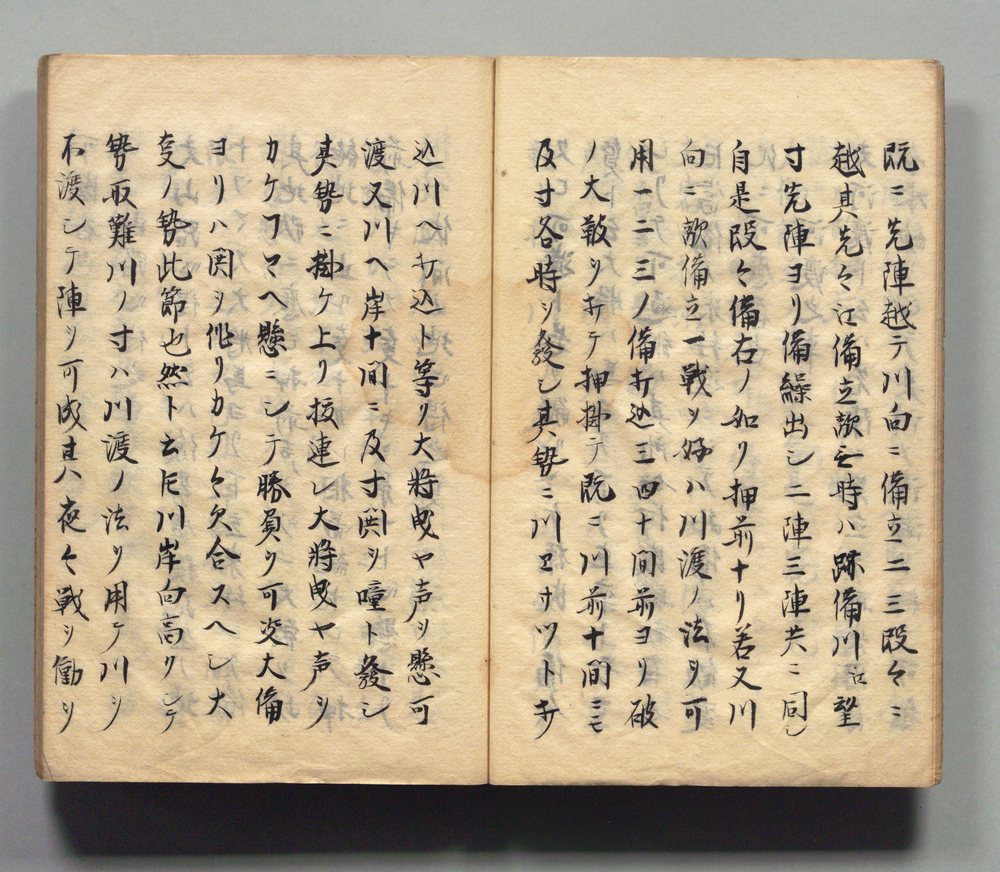 既ニ先陣越テ川向ニ備立二三段々ニ
越其先々江備立敵无時ハ跡備川江望
寸先陣ヨリ備繰出シ二陣三陣共ニ同シ
自是段々備右ノ如リ押前十リ若又川
向ニ敵備立一戦ヲ好ハ川渡ノ法ヲ可
用一二三ノ備打込三四十間前ヨリ破
ノ大皷ヲ打テ押掛テ既ニ川前十間ニモ
及寸各時ヲ發シ其勢ニ川エサツト打
込川ヘ打込ト等リ大将曵ヤ声ヲ懸可
渡又川ヘ岸十間ニ及寸閧ヲ噇ト發シ
其勢ニ掛ケ上リ拔連レ大将曵ヤ声ヲ
カケコマヘ懸ニシテ勝負ヲ可决大備
ヨリハ閧ヲ作リカケ々欠合スヘシ大
变ノ勢此節也然ト云𪜈川岸向高クシテ
勢取難川ノ寸ハ川渡ノ法ヲ用テ川ヲ
不渡シテ陣ヲ可成其ハ夜々戦ヲ働ヲ